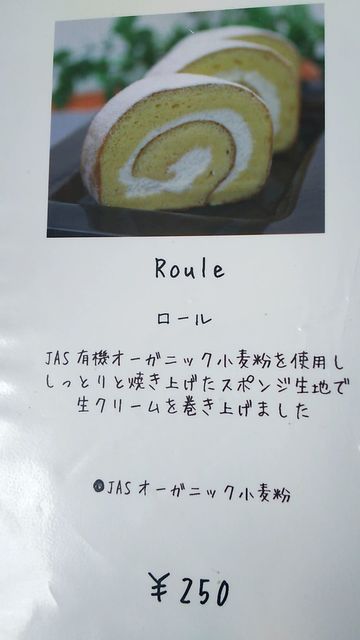 Roule
ロール
JAS有機オーガニック小麦粉を使用し
しっとりと焼き上げたスポンジ生地で
生クリームを巻き上げました
●JASオーガニック小麦粉
¥250